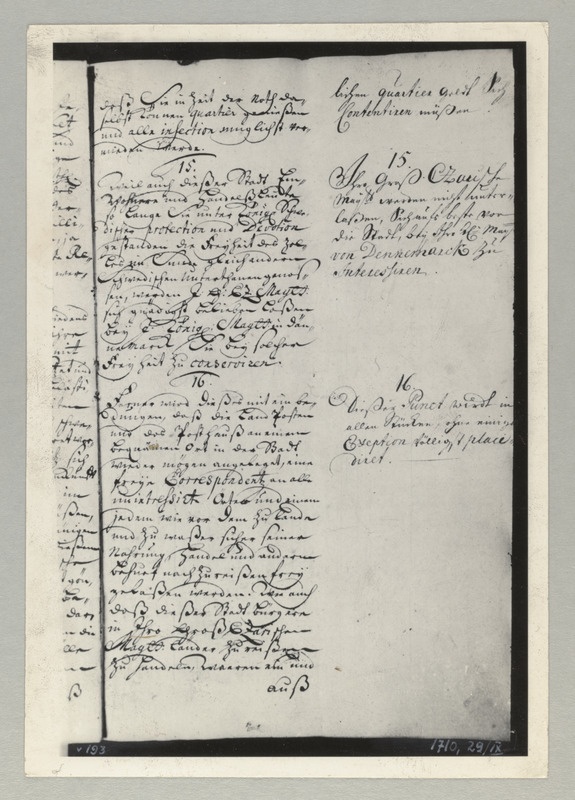 daß Sie in Zeit der Noth da,
selbst können quartier genießen
und alle infection müglichst ver,
mieden werde.
15.
Weil auch dießer Stadt Ein,
wohnere und Handelß Leuthe
so lange Sie unter Königl: Schwe,
discher protection und Devotion
gestanden die Freyheit des Zol,
les im Sunde gleich andern
Schwedischen Unterthanen genos,
sen, werden I. G: Cz. Maytt.
sich gnädigst belieben laßen
bey Königl: Maytt. in Dän,
nemarck Sie bey solcher
Freyheit zu conserviren.
16.
Ferner wird dießes mit ein be,
dungen, daß die Land Posten
und das Posthauß an einem
bequämen Ort in der Stadt
wieder mögen angeleget, eine
freye Correspondentz an alle
unintressirt Örter und einem
jedem wie vor dem zu Lande
und zu waßer sicher seiner
Nahrung, Handel und andern
behuef nach zu reißen frey
gelaßen werden. Wie auch
daß dießer Stadt bürgere
in Ihro Groß Czarischen
Maytt. Lander zu reißen
zu handeln, waaren ein und
auß
lichen quartier geldt Sich
Contentiren müßen.
15.
Ihr Groß Czarische
Maytt. werden nicht unter,
laßen, Sich aufs beste vor
die Stadt, bey Ihr Kl: May
von Dennemarck zu
Interessiren.
16.
Dießer Punct wirdt in
allen Stücken, ohne einige
Exception völligst place
diret.
v 193
1710, 29/IX